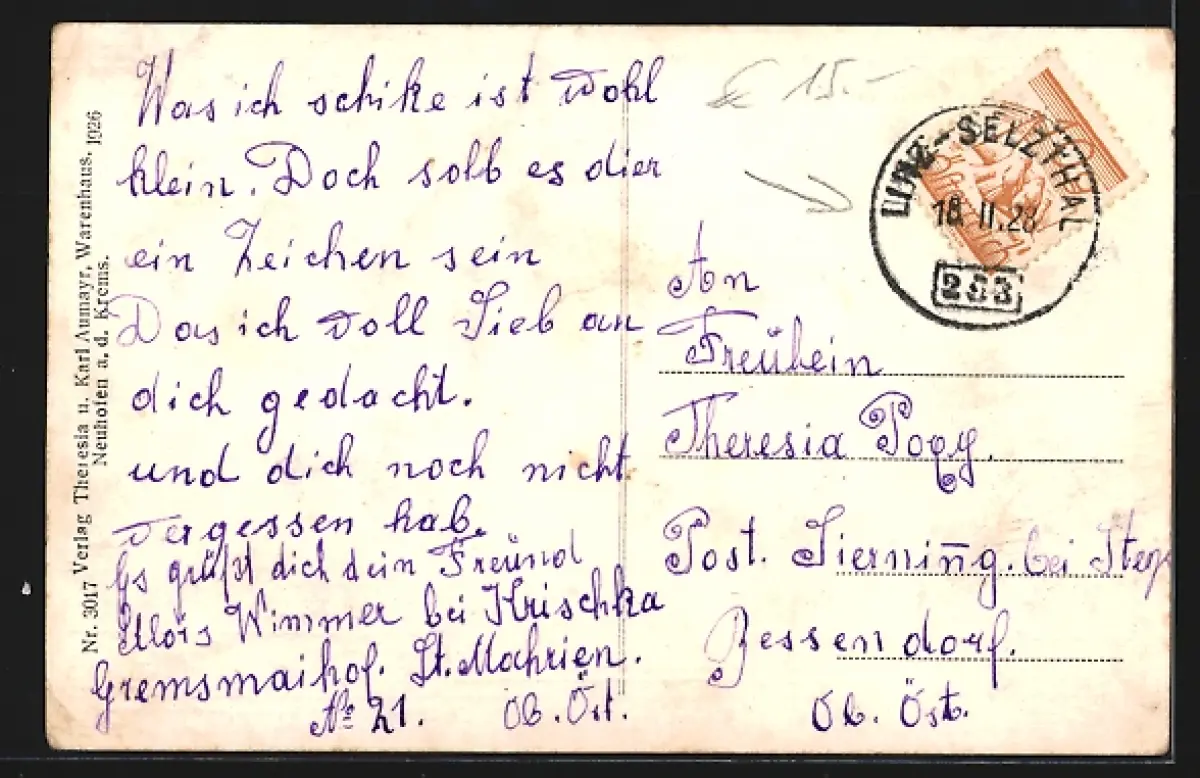 Was ich schike ist wohl
klein. Doch solb es dier
ein Zeichen sein
Das ich voll Lieb an
dich gedacht.
und dich noch nicht
vergessen hab.
Es grüßt dich dein Freünd
Alois Wimmer bei Krischka
Gremsmaihof. St. Mahrien.
No 21. Ob. Öst.
Nr. 3017 Verlag Theresia u. Karl Aumayr, Warenhaus. 1926
Neuhofen a. d. Krems.
€ 15.-
LINZ-SELZTHAL
18.II.28
283
An
Freülein
Theresia
Post. Sierning. bei Steyr
Ob. Öst.